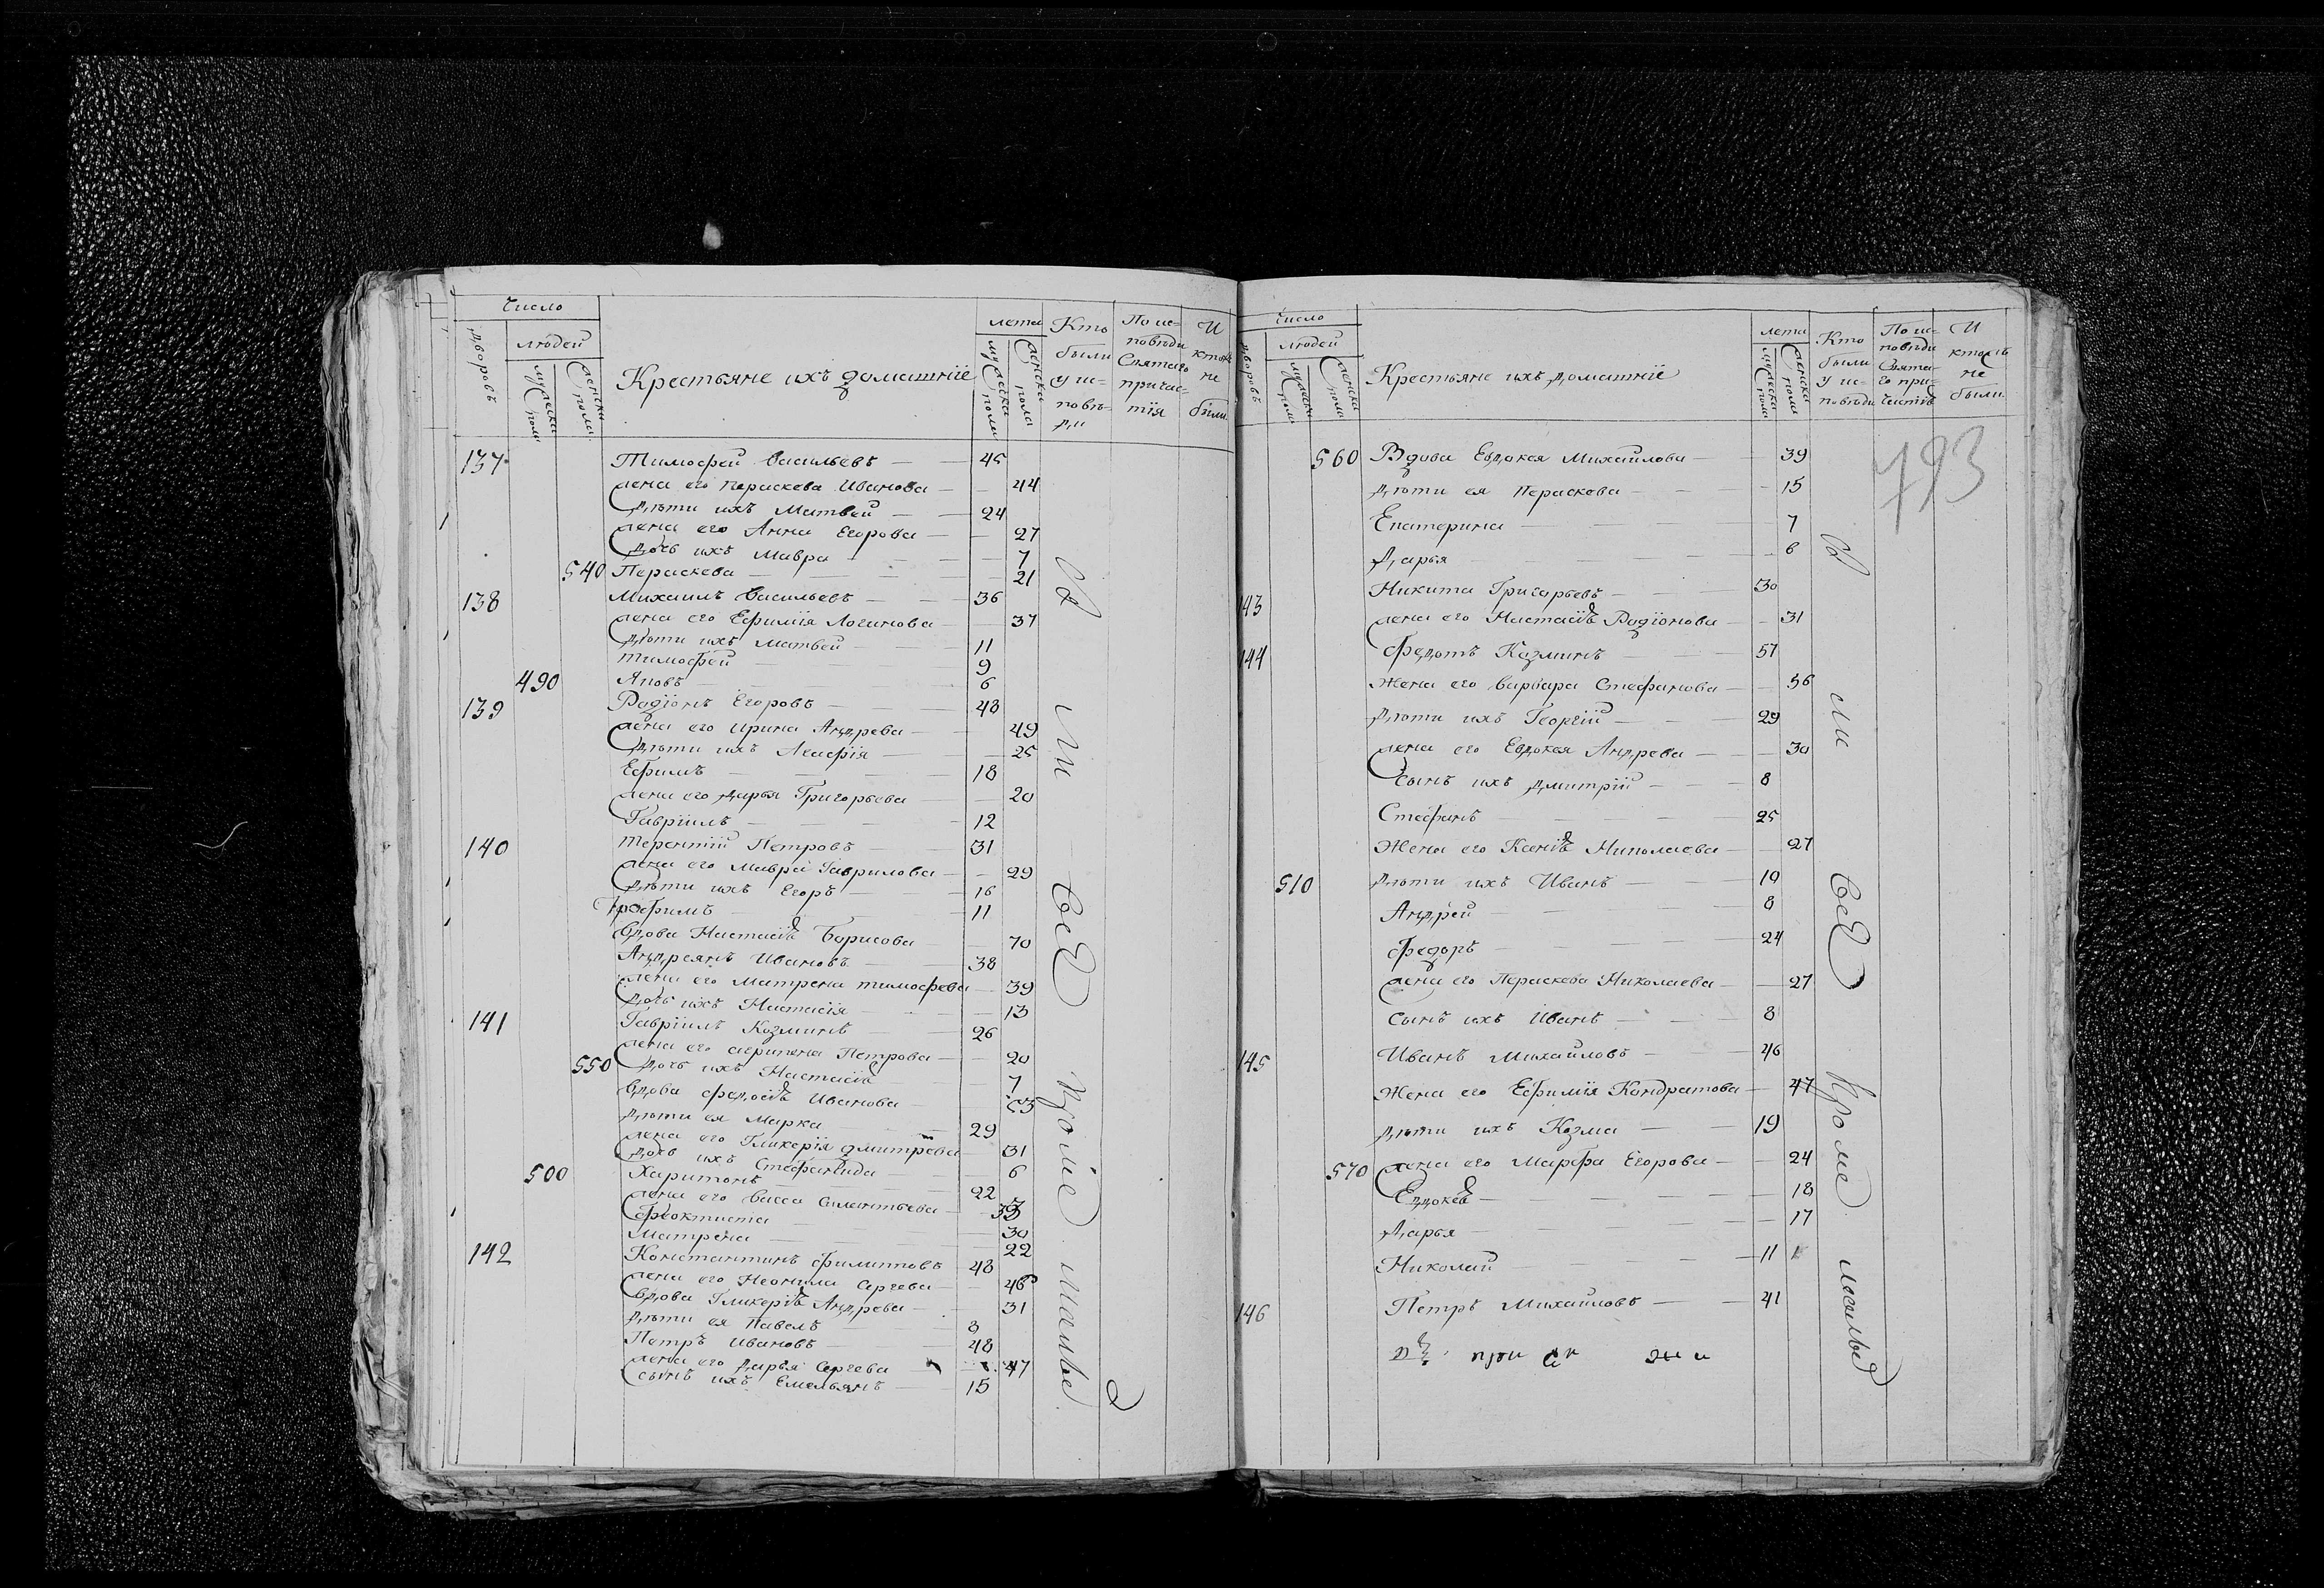 Число
дворовъ
людей
мужеска пола
женска пола
Крестьяне ихъ домашніе
лета
мужеска пола
женска пола
Кто были у исповѣди
По исповѣди Святаго причастія
И кто не были
137 Тимофей Васильевъ 45
жена его Параскева Иванова 44
Дѣти ихъ Матвей 24
жена его Анна Егорова 27
Дочь ихъ Мавра 7
540 Параскева 21
138 Михаилъ Васильевъ 36
жена его Ефимія Логинова 37
Дѣти ихъ Матвей 11
Тимофей 9
490 Яковъ 6
139 Родіонъ Егоровъ 48
жена его Ирина Андрева 49
Дѣти ихъ Агафія 25
Ефимъ 18
жена его Дарья Григорьева 20
Гавріилъ 12
140 Терентий Петровъ 31
жена его Мавра Гаврилова 29
Дѣти ихъ Егоръ 16
Трофимъ 11
Вдова Настасія Борисова 70
Андреянъ Ивановъ 38
жена его Матрена Тимофева 39
Дочь ихъ Настасія 13
141 Гавріилъ Козминъ 26
жена его Петрова 20
550 Дочь ихъ Настасія 7
Вдова Федосія Иванова
Дѣти ея Марка 29
жена его Гликерія Дмитрева 31
Дочь ихъ Стефанида 6
500 Харитонъ 22
жена его Васса
Феоктиста 30
Матрена 22
142 Константинъ Филиповъ 48
жена его Неонила Сергева 46
Вдова Гликерія Андрева 31
Дѣти ея Павелъ 8
Петръ Ивановъ 48
жена его Дарья Сергева 47
сынъ ихъ Емельянъ 15
Число
дворовъ
людей
мужеска пола
женска пола
Крестьяне ихъ домашніе
лета
мужеска пола
женска пола
Кто были у исповѣди
По исповѣди Святаго причастія
И кто не были
793
560 Вдова Евдокея Михайлова 39
Дѣти ея Параскева 15
Екатерина 7
Дарья 6
143 Никита Григорьевъ 30
жена его Настасія Родіонова 31
144 Федотъ Козминъ 57
Жена его Варвара Стефанова 56
Дѣти ихъ Георгій 29
жена его Евдокея Андрева 30
Сынъ ихъ Дмитрій 8
Стефанъ 25
Жена его Ксенія Николаева 27
510 Дѣти ихъ Иванъ 10
Андрей 8
Федоръ 24
жена его Параскева Николаева 27
Сынъ ихъ Иванъ 8
145 Иванъ Михайловъ 46
Жена его Ефимія Кондратова 47
Дѣти ихъ Козма 19
570 жена его Марфа Егорова 24
Евдокея 18
Дарья 17
Николай 11
146 Петръ Михайловъ 41